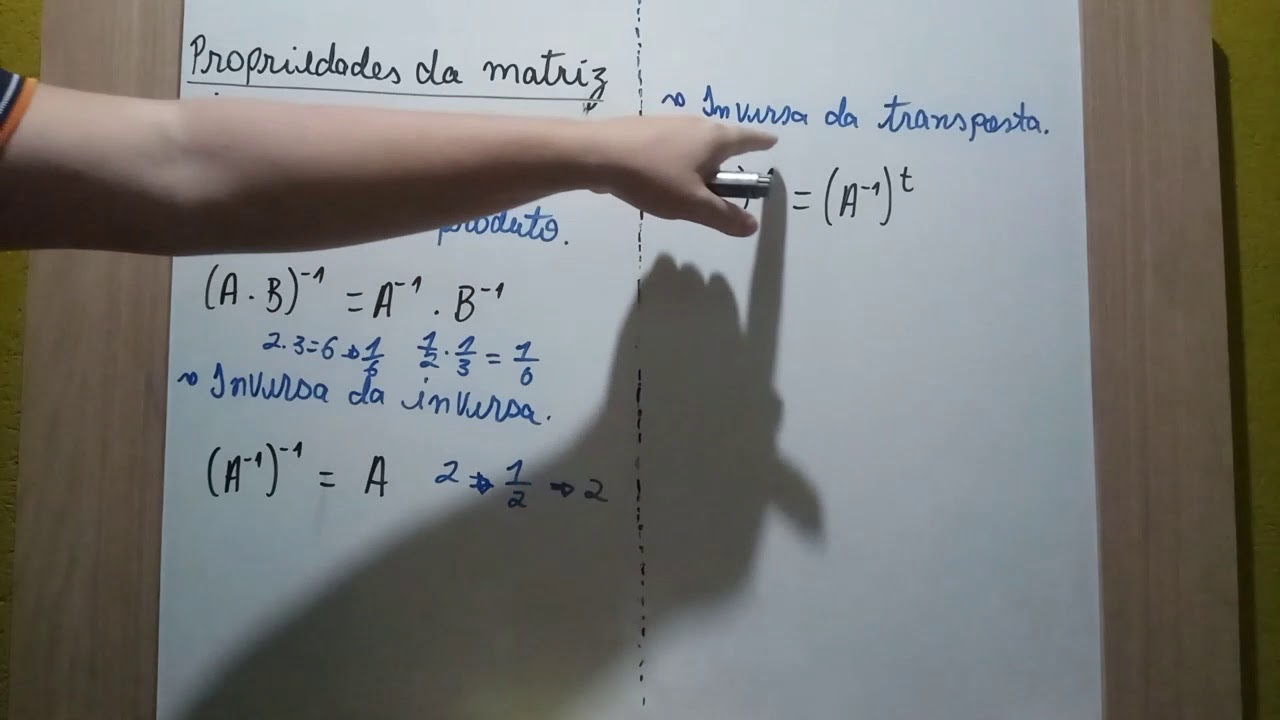 Propriedades da matriz
produto.
(A . B)⁻¹ = A⁻¹ . B⁻¹
2.3=6 → 1/6 1/2 . 1/3 = 1/6
~ Inversa da inversa.
(A⁻¹)⁻¹ = A 2 → 1/2 → 2
~ Inversa da transposta.
= (A⁻¹)ᵗ